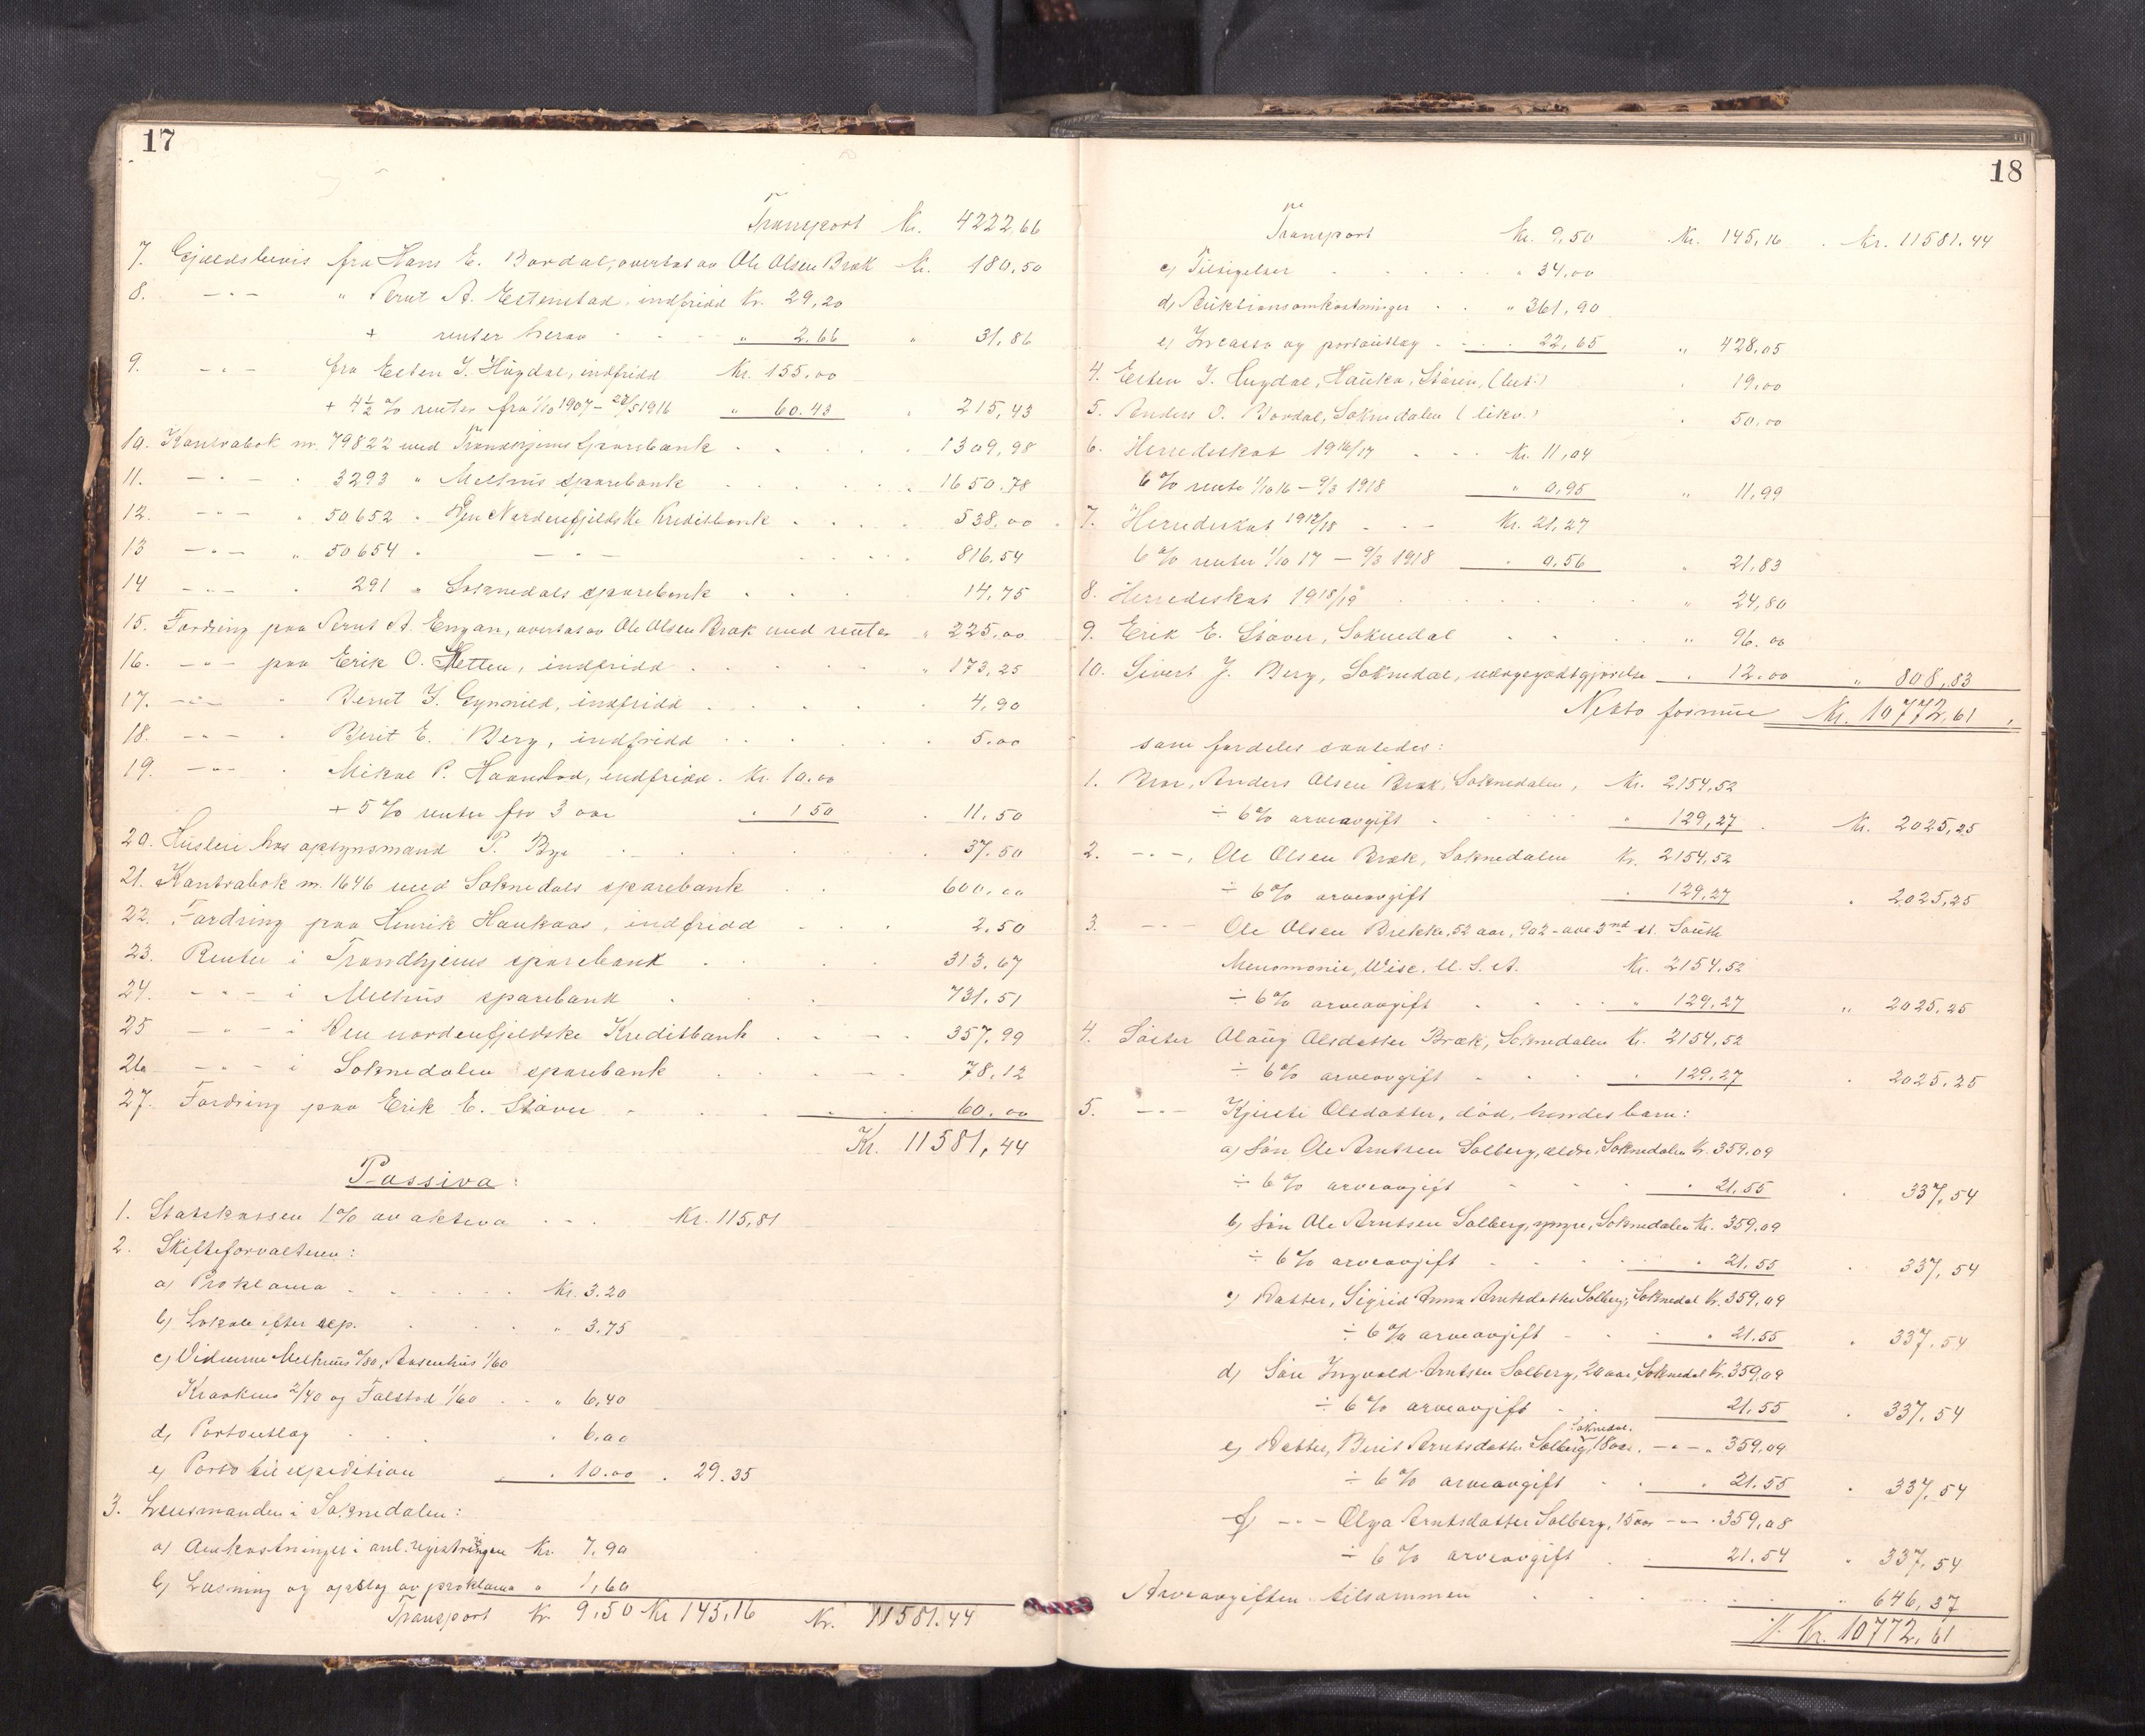 17
Transport Kr. 4222,66
7. Gjældsbevis fra Hans E. Bordal, overtat av Ole Olsen Bræk Kr. 180,50
8. -"- " Arnt A. Estenstad, indfridd Kr. 29,20
+ renter herav " 2.66 " 31,86
9. -"- fra Esten J. Hugdal, indfridd Kr. 155.00
+ 4½ % renter fra 1/10 1907 - 28/5 1916 " 60.43 " 215,43
10. Kontrabok nr. 79822 med Trondhjems Sparebank 1309,98
11. -"- " 3293 " Melhus sparebank 1650.78
12. -"- " 50652 " Den Nordenfjeldske Kreditbank 538,00
13 -"- " 50654 " -"- 816,54
14 -"- " 291 " Soknedals sparebank 14,75
15. Fordring paa Arnt A. Engan, overtat av Ole Olsen Bræk med renter " 225,00
16. -"- paa Erik O. Hetten, indfridd " 173,25
17. -"- " Bernt J. Gynnild, indfridd 4,90
18. -"- " Berit E. Berg, indfridd 5.00
19. -"- " Mikal P. Haanstad, indfridd. Kr. 10.00
+ 5 % renter for 3 aar " 1 50 " 11.50
20. Husleie hos opsynsmand P. Bye 37.50
21. Kontrabok nr. 1646 med Soknedals sparebank 600,00
22. Fordring paa Henrik Haukaas, indfridd 2.50
23. Renter i Trondhjems sparebank 313.67
24. -"- i Melhus sparebank 731.51
25 -"- i Den nordenfjeldske Kreditbank 357,99
26 -"- i Soknedalen sparebank 78,12
27. Fordring paa Erik E. Støver 60.00
Kr. 11581,44
Passiva:
1. Statskassen 1% av aktiva Kr. 115,81
2. Skifteforvalteren:
a) Proklama Kr. 3.20
b) Lokale efter rep. " 3.75
c) Vidnerne Melhus /80, Aasenhus 1/60
Kraakmo 2/40 og Falstad 1/60 " 6,40
d, Portoutlæg " 6.00
e) Porto til expedition " 10.00 " 29.35
3. Lensmanden i Soknedalen:
a) Omkostninger i anl. registringen Kr. 7,90
b) Læsning og opslag av proklama " 1,60
Transport Kr. 9,50 Kr 145,16 Kr. 11581.44
18
Transport Kr. 9,50 Kr. 145,16 Kr. 11581.44
c) Tilsigelser " 34,00
d, Auktionsomkostninger " 361,90
e) Incasso og portoutlæg 22,65 " 428,05
4. Esten J. Hugdal, Hauka, Støren, 19,00
5. Anders O. Bordal, Soknedalen 50,00
6. Herredeskat 1916/17 Kr. 11,04
6% rente 1/10 16 - 9/3 1918 " 0,95 " 11,99
7. Herredeskat 1917/18 Kr. 21,27
6% renter 1/10 17 - 9/3 1918 " 0,56 " 21,83
8. Herredeskat 1918/19 " 24,80
9. Erik E. Støver, Soknedal " 96.00
10. Sivert J. Berg, Soknedal, 12.00 " 808,83
Netto formue Kr. 10772,61
som fordeles saaledes:
1. Bror, Anders Olsen Bræk, Soknedalen, Kr. 2154,52
÷ 6% arveavgift " 129,27 Kr. 2025,25
2. -"-, Ole Olsen Bræk, Soknedalen Kr. 2154,52
÷ 6% arveavgift " 129,27 " 2025,25
3. -"- Ole Olsen Brekke, 52 aar, 902 - ave 3nd st. South
Menomonie, Wisc. U.S.A. Kr. 2154,52
÷ 6% arveavgift " 129,27 " 2025,25
4. Søster Olaug Olsdatter Bræk, Soknedalen Kr. 2154,52
÷ 6% arveavgift " 129,27 " 2025,25
5. -"- Kjersti Olsdatter, død, hendes barn:
a) Søn Ole Arntsen Solberg, ældre, Soknedalen Kr. 359.09
÷ 6% arveavgift " 21.55 337,54
b) Søn Ole Arntsen Solberg, yngre, Soknedalen Kr. 359,09
÷ 6% arveavgift " 21.55 " 337,54
c) Datter, Sigrid Anna Arntsdatter Solberg, Soknedal Kr. 359,09
÷ 6% arveavgift " 21.55 " 337,54
d) Søn Ingvald Arntsen Solberg, 20 aar, Soknedal Kr. 359,09
÷ 6% arveavgift 21.55 " 337,54
e) Datter, Berit Arntsdatter Solberg, Soknedal. 18 aar. -"- " 359,09
÷ 6% arveavgift " 21.55 " 337,54
f) -"- Olga Arntsdatter Solberg, 15 aar -"- " 359,08
÷ 6% arveavgift 21.54 " 337,54
Arveavgiften tilsammen " 646,37
Kr. 10772,61